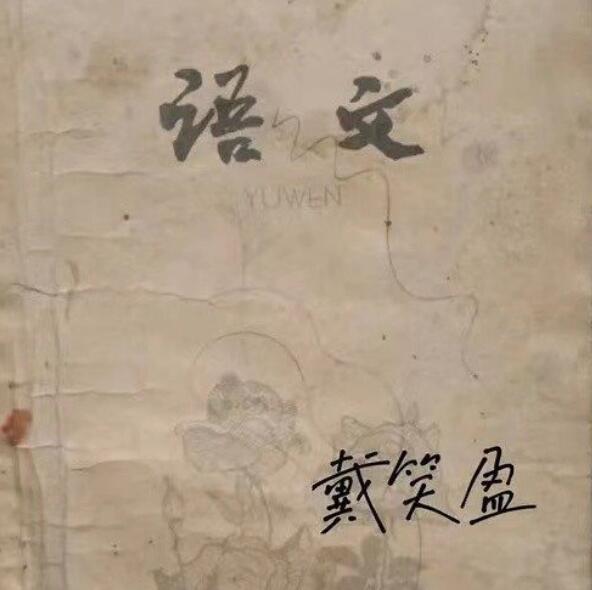 语文
YUWEN
戴笑盈